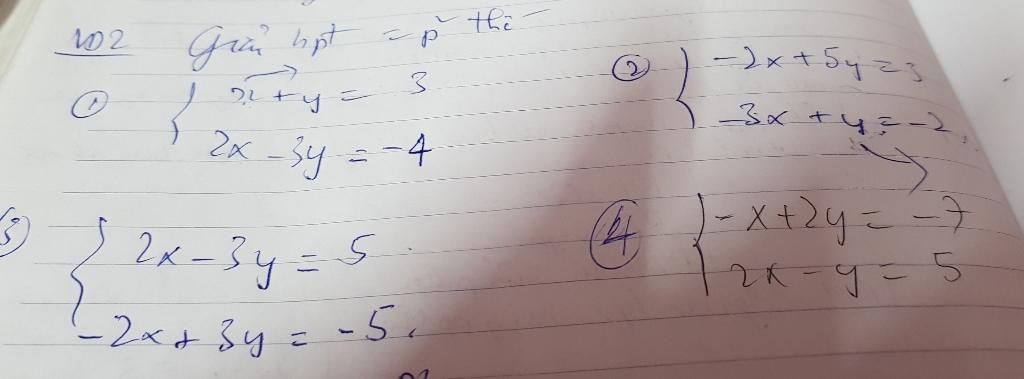 102 Giải hpt = p² thế
① { x + y = 3
2x - 3y = -4
② { -2x + 5y = 3
-3x + y = -2
③ { 2x - 3y = 5
-2x + 3y = -5
④ { -x + 2y = -7
2x - y = 5